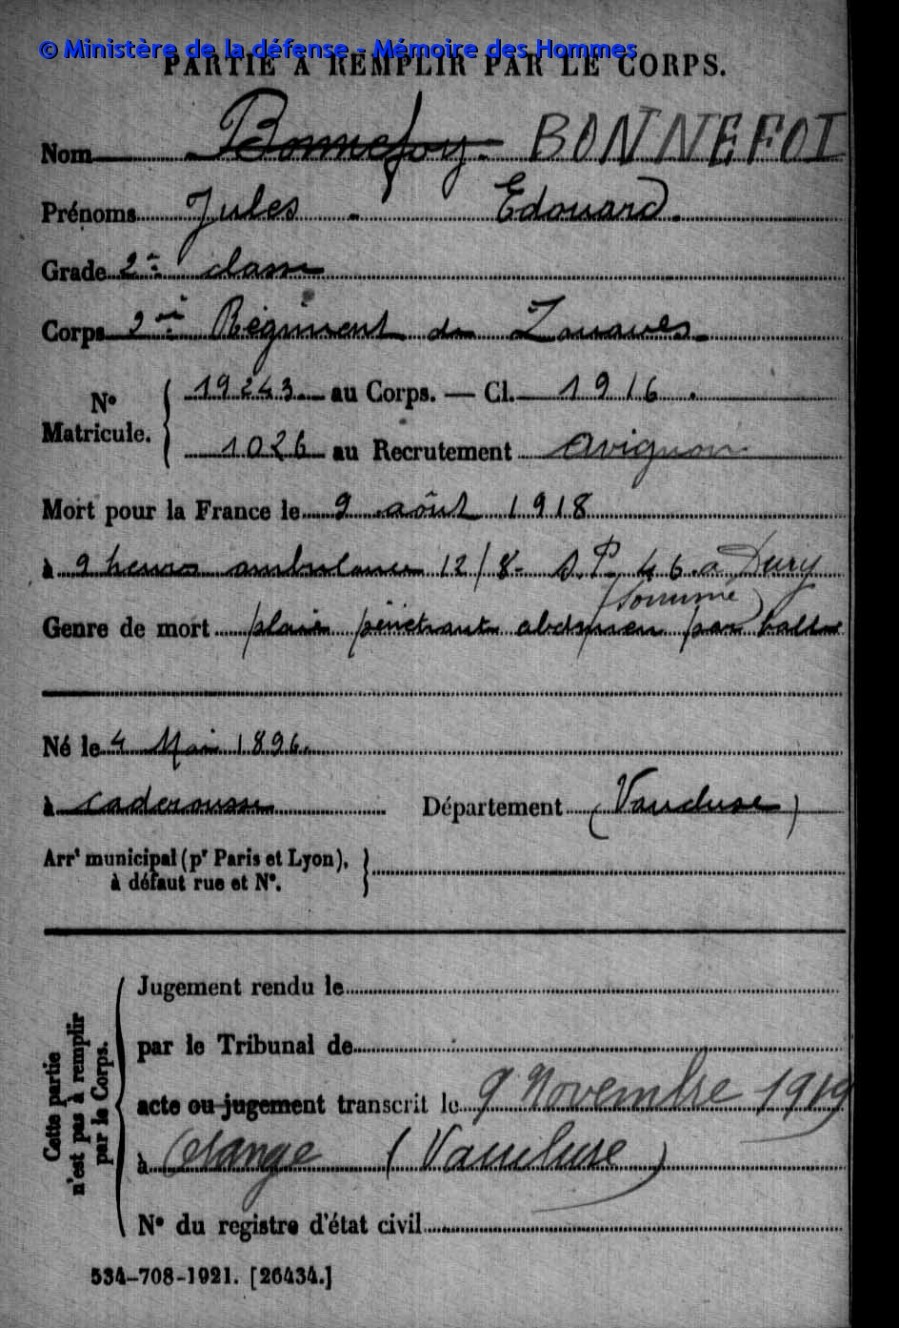 © Ministère de la défense - Mémoire des Hommes
PARTIE A REMPLIR PAR LE CORPS.
Nom Bonnefoy. BONNEFOI
Prénoms Jules Edouard.
Grade 2e classe
Corps Régiment de Zouaves
N° Matricule. 19243 au Corps. — Cl. 1916.
1026 au Recrutement Avignon
Mort pour la France le 9 août 1918
à 9 heures ambulance 12/8 S.P. 46 a Dury
(Somme)
Genre de mort plaie pénétrante abdomen par balle
Né le 4 Mai 1896.
à Caderousse Département (Vaucluse)
Arrt municipal (pr Paris et Lyon),
à défaut rue et N°.
Cette partie n'est pas à remplir par le Corps.
Jugement rendu le
par le Tribunal de
acte ou jugement transcrit le 9 Novembre 1919
à Orange (Vaucluse)
N° du registre d'état civil
534-708-1921. [26434.]